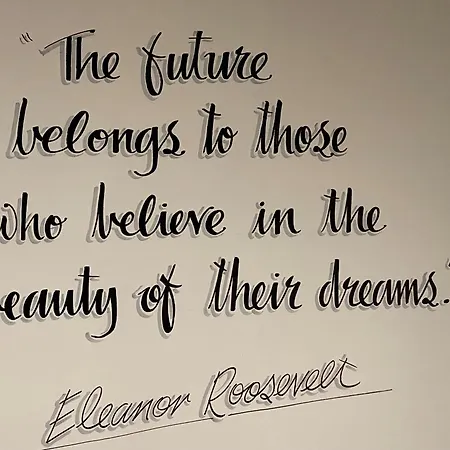 "The future
belongs to those
who believe in the
beauty of their dreams."
Eleanor Roosevelt